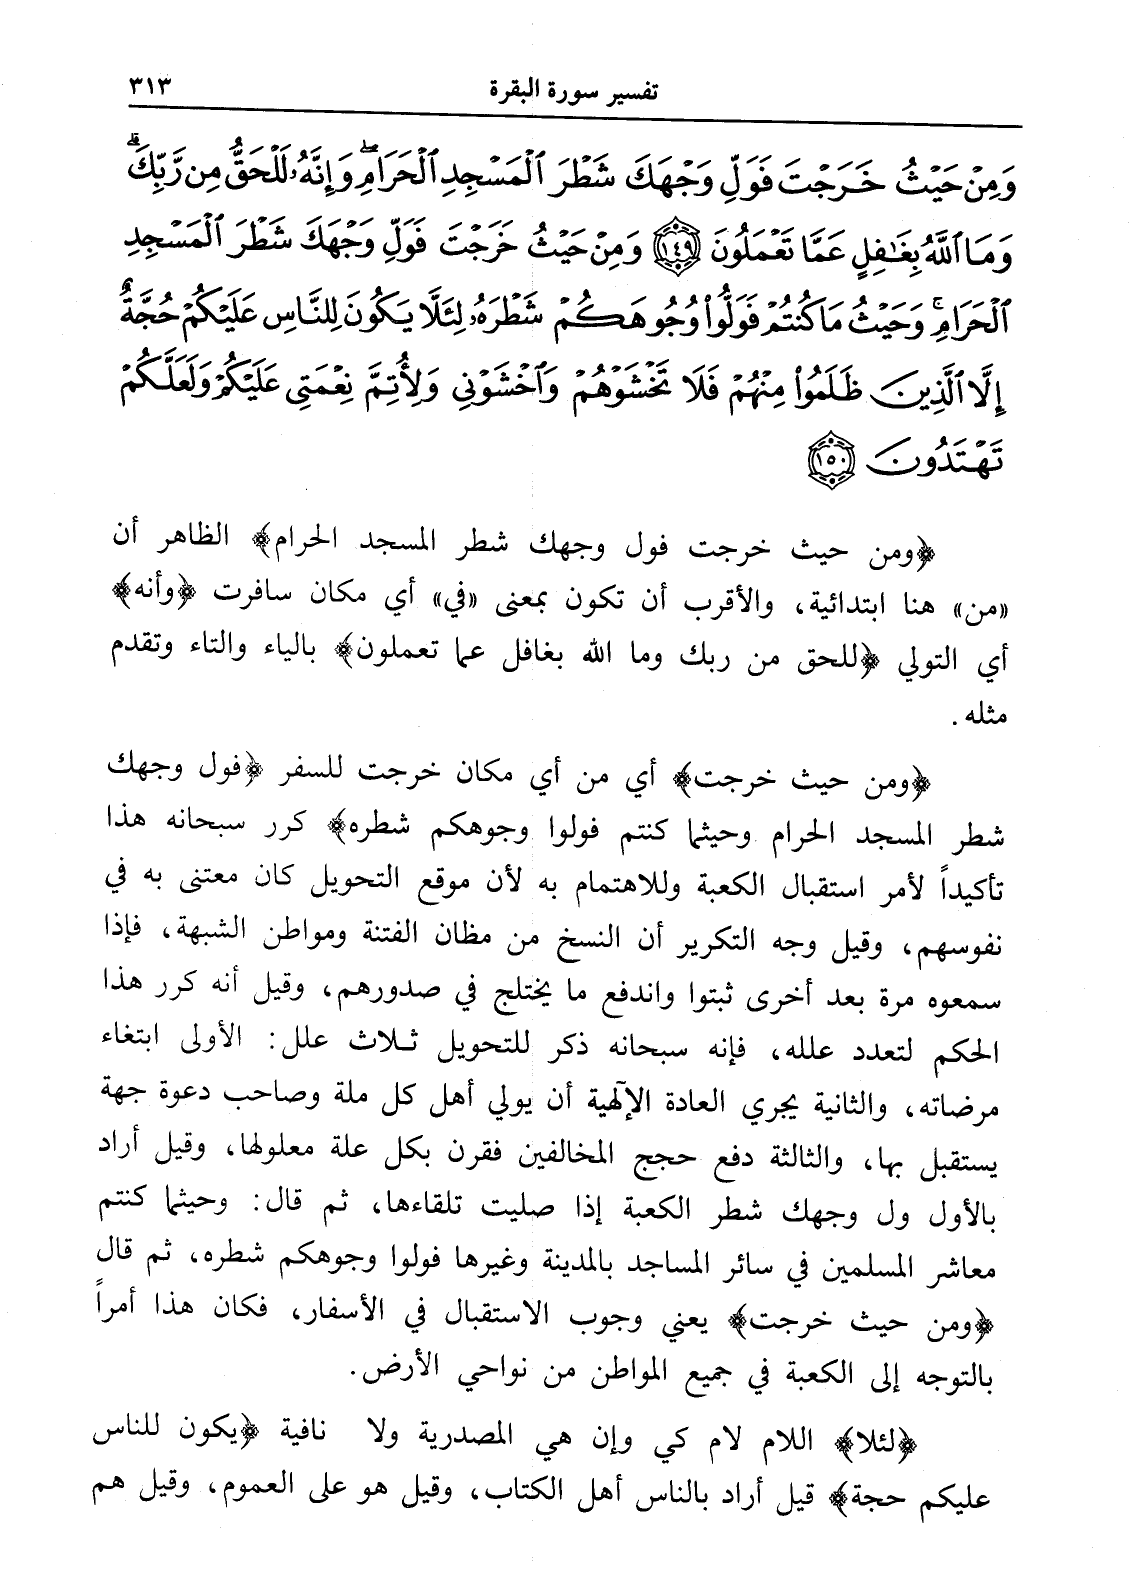 تفسير سورة البقرة ٣١٣
وَمِنْ حَيْثُ خَرَجْتَ فَوَلِّ وَجْهَكَ شَطْرَ ٱلْمَسْجِدِ ٱلْحَرَامِ ۖ وَإِنَّهُۥ لَلْحَقُّ مِن رَّبِّكَ ۗ
وَمَا ٱللَّهُ بِغَٰفِلٍ عَمَّا تَعْمَلُونَ ١٤٩ وَمِنْ حَيْثُ خَرَجْتَ فَوَلِّ وَجْهَكَ شَطْرَ ٱلْمَسْجِدِ
ٱلْحَرَامِ ۚ وَحَيْثُ مَا كُنتُمْ فَوَلُّوا۟ وُجُوهَكُمْ شَطْرَهُۥ لِئَلَّا يَكُونَ لِلنَّاسِ عَلَيْكُمْ حُجَّةٌ
إِلَّا ٱلَّذِينَ ظَلَمُوا۟ مِنْهُمْ فَلَا تَخْشَوْهُمْ وَٱخْشَوْنِي وَلِأُتِمَّ نِعْمَتِي عَلَيْكُمْ وَلَعَلَّكُمْ
تَهْتَدُونَ ١٥٠
﴿ومن حيث خرجت فول وجهك شطر المسجد الحرام﴾ الظاهر أن
«من» هنا ابتدائية، والأقرب أن تكون بمعنى «في» أي مكان سافرت ﴿وأنه﴾
أي التولي ﴿للحق من ربك وما الله بغافل عما تعملون﴾ بالياء والتاء وتقدم
مثله.
﴿ومن حيث خرجت﴾ أي من أي مكان خرجت للسفر ﴿فول وجهك
شطر المسجد الحرام وحيثما كنتم فولوا وجوهكم شطره﴾ كرر سبحانه هذا
تأكيداً لأمر استقبال الكعبة وللاهتمام به لأن موقع التحويل كان معتنى به في
نفوسهم، وقيل وجه التكرير أن النسخ من مظان الفتنة ومواطن الشبهة، فإذا
سمعوه مرة بعد أخرى ثبتوا واندفع ما يختلج في صدورهم، وقيل أنه كرر هذا
الحكم لتعدد علله، فإنه سبحانه ذكر للتحويل ثلاث علل: الأولى ابتغاء
مرضاته، والثانية يجري العادة الإلٓهية أن يولي أهل كل ملة وصاحب دعوة جهة
يستقبل بها، والثالثة دفع حجج المخالفين فقرن بكل علة معلولها، وقيل أراد
بالأول ول وجهك شطر الكعبة إذا صليت تلقاءها، ثم قال: وحيثما كنتم
معاشر المسلمين في سائر المساجد بالمدينة وغيرها فولوا وجوهكم شطره، ثم قال
﴿ومن حيث خرجت﴾ يعني وجوب الاستقبال في الأسفار، فكان هذا أمراً
بالتوجه إلى الكعبة في جميع المواطن من نواحي الأرض.
﴿لئلا﴾ اللام لام كي وإن هي المصدرية ولا نافية ﴿يكون للناس
عليكم حجة﴾ قيل أراد بالناس أهل الكتاب، وقيل هو على العموم، وقيل هم